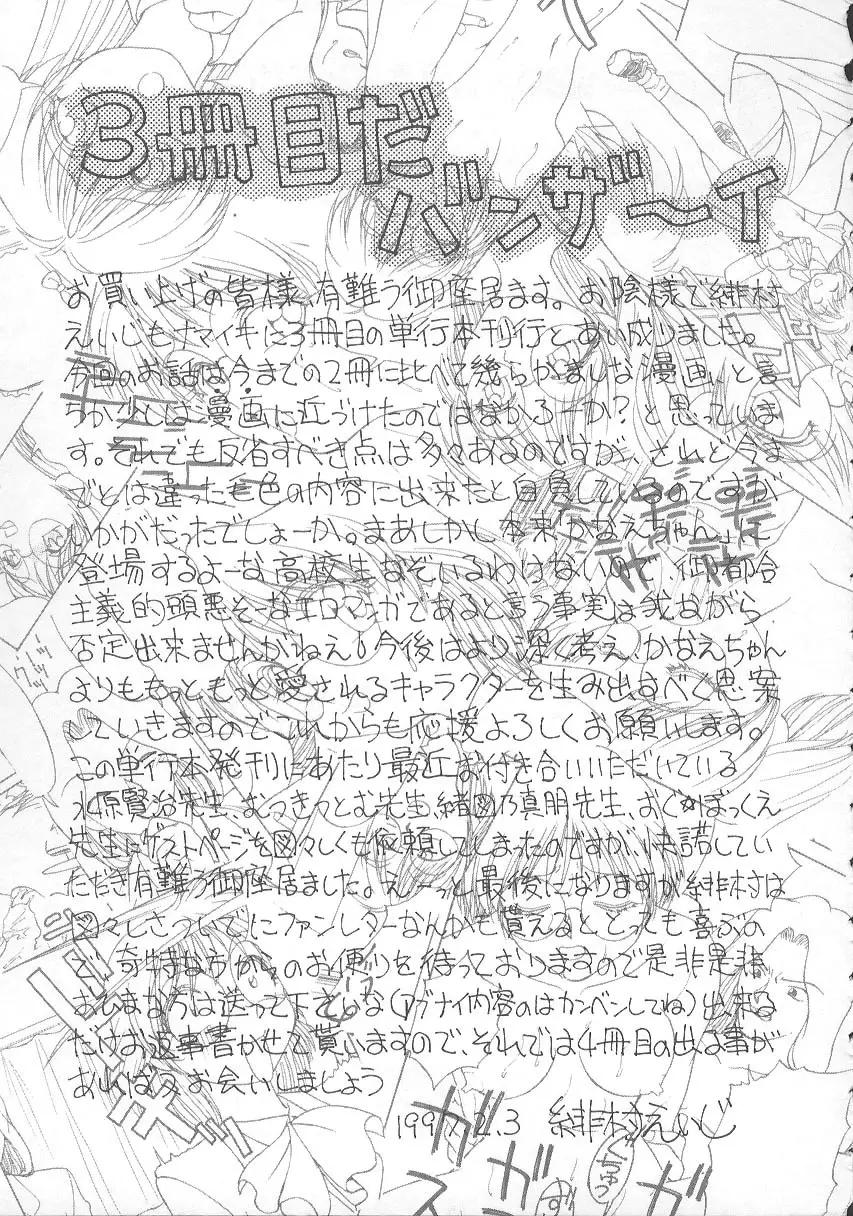 3冊目だ
バンザ～イ
お買い上げの皆様、有難う御座居ます。お陰様で緋村
えいじもナマイキに3冊目の単行本刊行とあい成りました。
今回のお話は今までの2冊に比べて幾らかましな漫画、と言
うか少しは漫画に近づけたのではなかろーか?と思っていま
す。それでも反省すべき点は多々あるのですが、されど今ま
でとは違った毛色の内容に出来たと自負しているのですが
いかがだったでしょーか。まあしかし本来「かなえちゃん」に
登場するよーな高校生なぞいるわけないので、御都合
主義的頭悪そーなエロマンガであると言う事実は我ながら
否定出来ませんがねえ!今後はより深く考え、かなえちゃん
よりももっともっと愛されるキャラクターを生み出すべく思案
していきますのでこれからも応援よろしくお願いします。
この単行本発刊にあたり最近お付き合いいただいている
水原賢治先生、むつきつとむ先生、緒図乃真朋先生、おぐ☆ぼっくえ
先生にゲストページを図々しくも依頼してしまったのですが、快諾してい
ただき有難う御座居ました。え～っと最後になりますが緋村は
図々しさついでにファンレターなんかも貰えるととっても喜ぶの
で、奇特な方からのお便りを待っておりますので是非是非
おひまなら送って下さいな(アブナイ内容のはカンベンしてね)出来る
だけお返事書かせて貰いますので、それでは4冊目の出る事が
あれば又お会いしましょう
1997.2.3 緋村えいじ
ガガ
くちゅっ